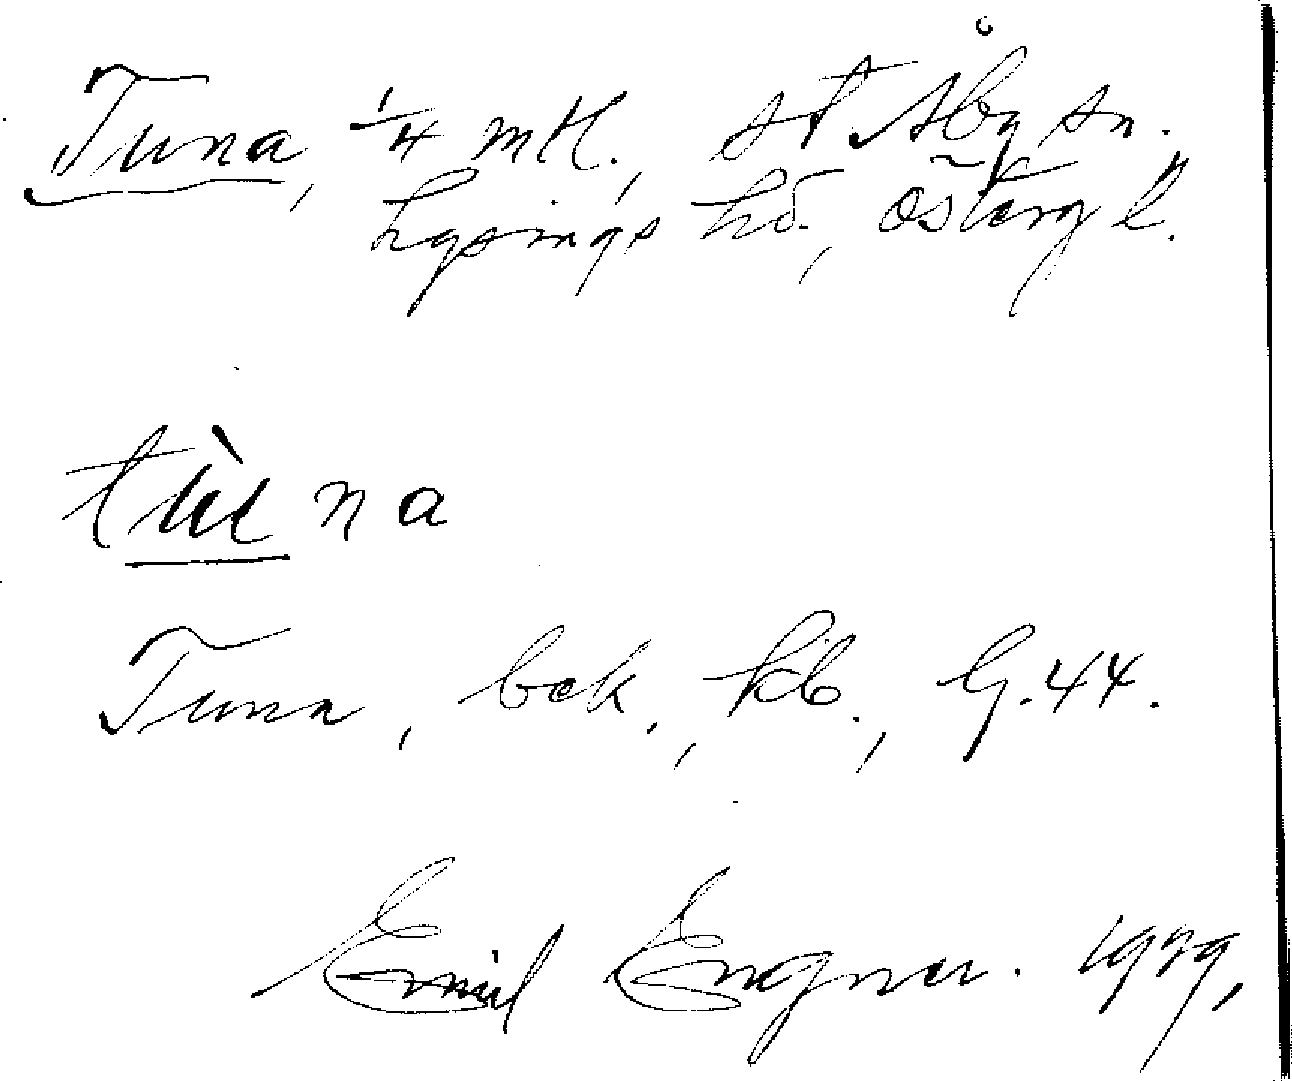 Tuna, 1/4 mtl., st Åby sn.
Lysings hd., Östergl.
tùna
Tuna, bek., kb., G. 44.
Emil Engner. 1929,